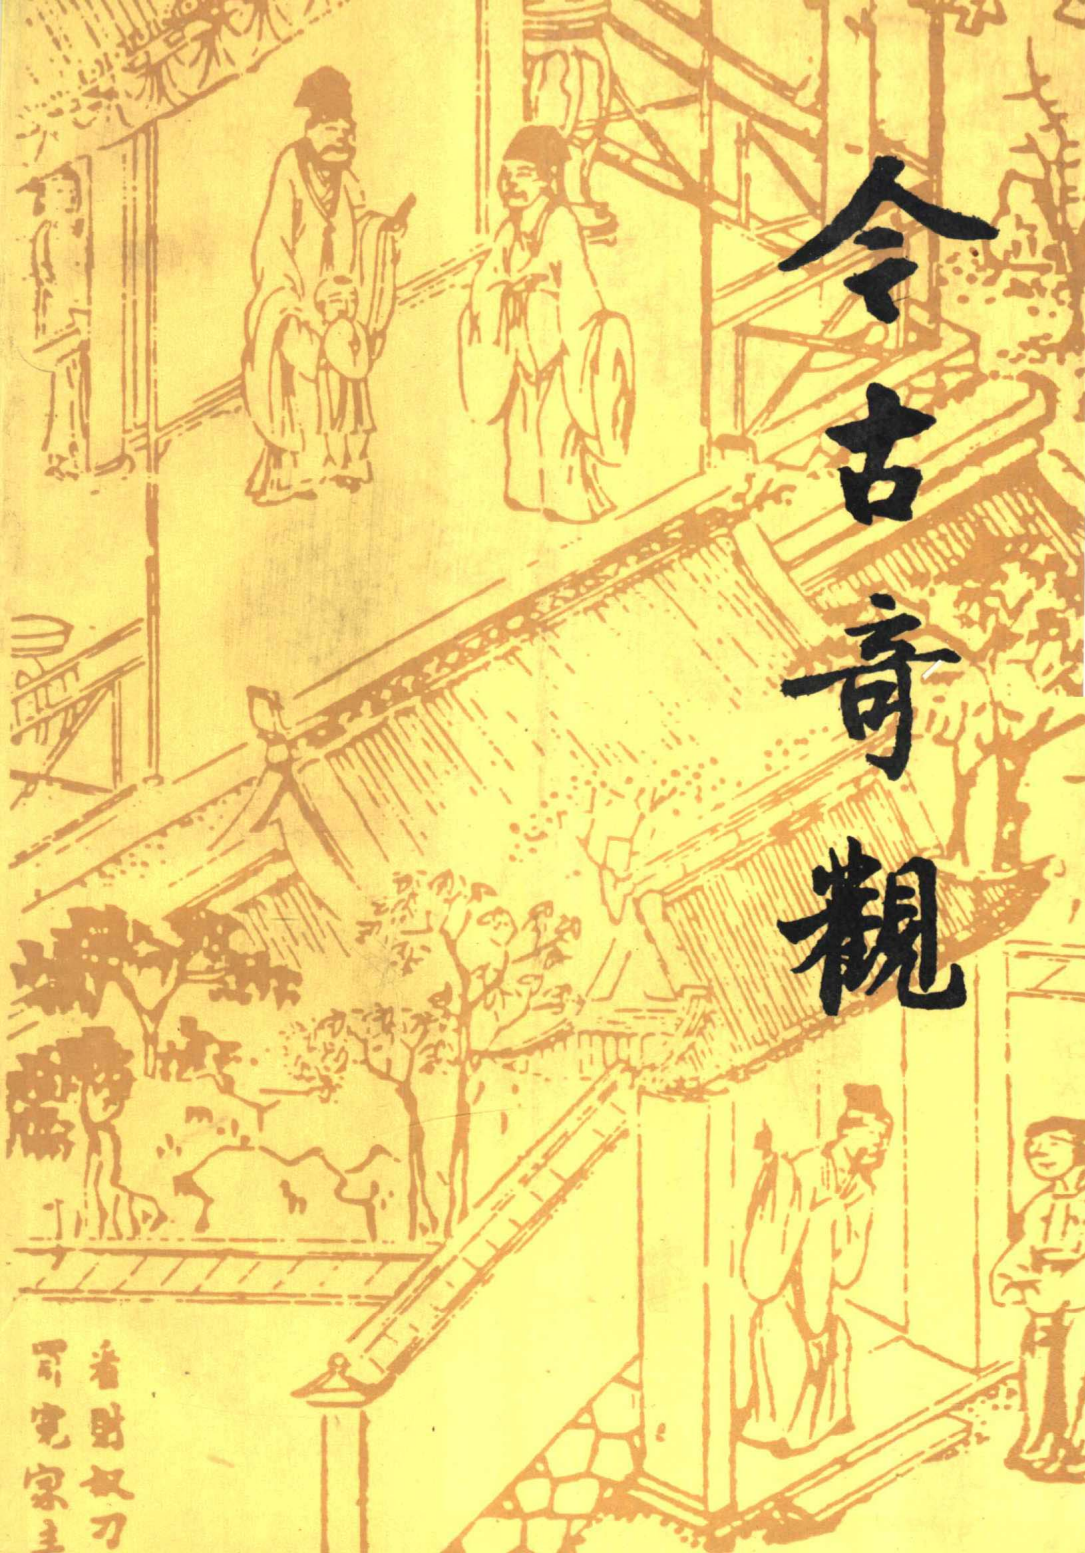 今古奇觀
看財奴刁
買冤家主